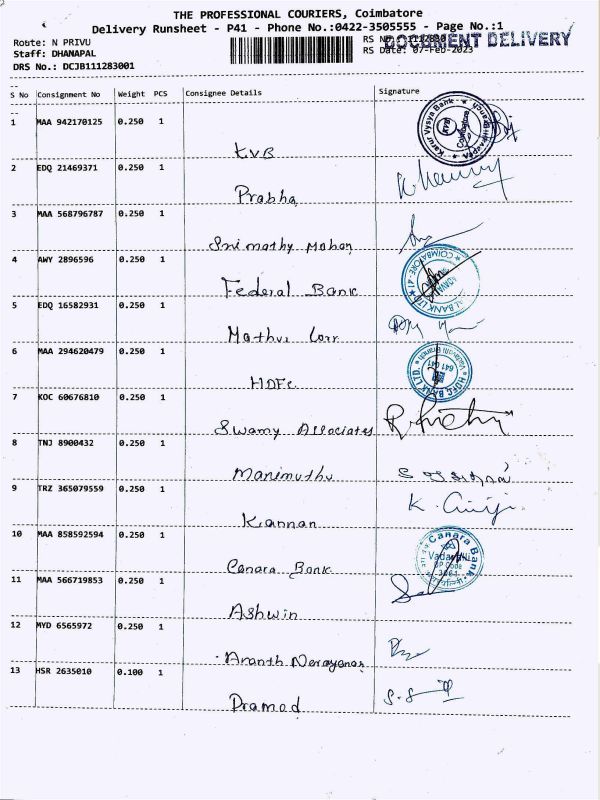 THE PROFESSIONAL COURIERS, Coimbatore
Delivery Runsheet - P41 - Phone No.:0422-3505555 - Page No.:1
DOCUMENT DELIVERY
Route: N PRIVU
RS No.
Staff: DHANAPAL
RS Date: 07-Feb-2023
DRS No.: DCJB111283001
S No Consignment No Weight PCS Consignee Details Signature
1 MAA 942170125 0.250 1
KVB
Karur Vysya Bank
KVB
Coimbatore
2 EDQ 21469371 0.250 1
Prabha
3 MAA 568796787 0.250 1
Srimathy Mohan
4 AWY 2896596 0.250 1
Federal Bank
COIMBATORE-41
BANK LTD
5 EDQ 16582931 0.250 1
Mathvi Corr
6 MAA 294620479 0.250 1
HDFC
HDFC BANK LTD.
641 041
7 KOC 60676810 0.250 1
Swamy Associates
8 TNJ 8900432 0.250 1
Manimuthu
9 TRZ 365079559 0.250 1
Kannan
10 MAA 858592594 0.250 1
Canara Bank
Canara Bank
Vadavalli
DP Code
11 MAA 566719853 0.250 1
Ashwin
12 MYD 6565972 0.250 1
Ananth Narayanan
13 HSR 2635010 0.100 1
Pramod